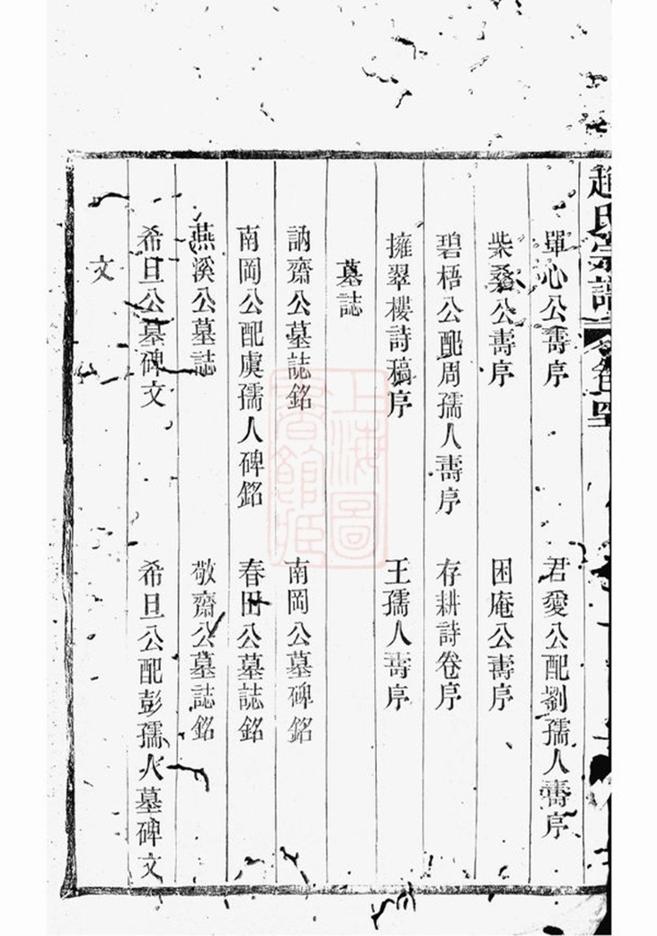 趙氏宗譜 卷四
單心公壽序 君愛公配劉孺人壽序
柴桑公壽序 困庵公壽序
碧梧公配周孺人壽序 存耕詩卷序
擁翠樓詩稿序 王孺人壽序
墓誌
訥齋公墓誌銘 南岡公墓碑銘
南岡公配虞孺人碑銘 春田公墓誌銘
燕溪公墓誌 敬齋公墓誌銘
希旦公墓碑文 希旦公配彭孺人墓碑文
文
上海圖
書館藏